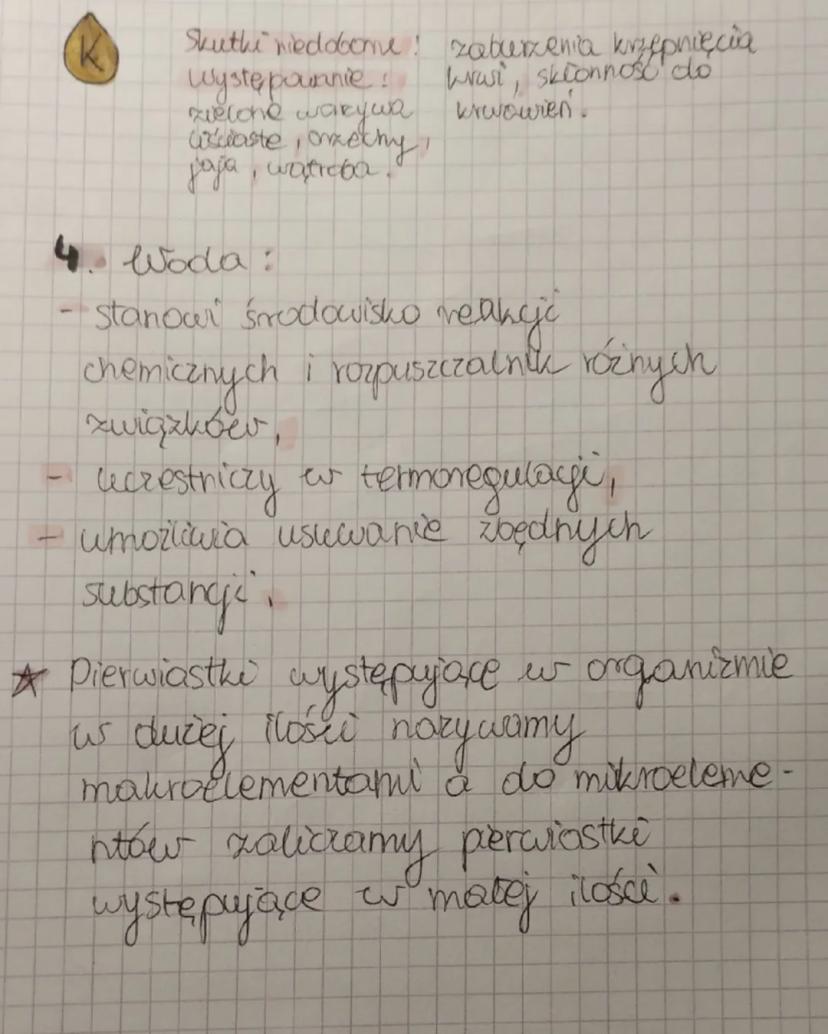 K
Skutki niedoboru: zaburzenia krzepnięcia
Występowanie: krwi, skłonność do
zielone warzywa krwawień.
liściaste, orzechy,
jaja, wątroba.
4. Woda:
- stanowi środowisko reakcji
chemicznych i rozpuszczalnik różnych
związków,
- uczestniczy w termoregulacji,
- umożliwia usuwanie zbędnych
substancji.
★ Pierwiastki występujące w organizmie
w dużej ilości nazywamy
makroelementami a do mikroeleme-
ntów zaliczamy pierwiastki
występujące w małej ilości.